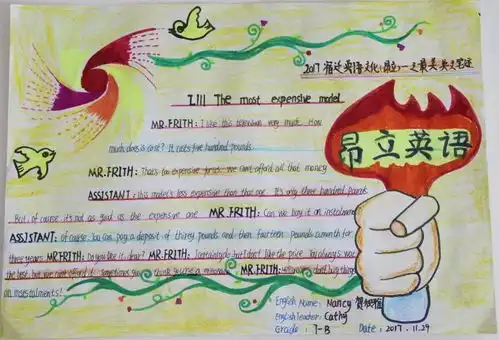 2017
L111 The most expensive model
MR.FRITH: I like this television very much. How
much does it cost? It costs five hundred pounds.
MR.FRITH: That's too expensive, We can't afford all that money
ASSISTANT: this model's less expensive than that one. It's only three hundred pounds
But, of course, it's not as good as the expensive one MR.FRITH: Can we buy it on instalments
ASSISTANT: of course. You can pay a deposit of thirty pounds and then fourteen pounds a month for
three years MR FRITH: Do you like it, dear? MR.FRITH: I certainly do, but I don't like the price. You always want
the best, but we can't afford it. Sometimes you think you're a MR.FRITH: buy things
on instalments!
昂立英语
English Name: Nancy
English teacher: Cathy
Grade: 7-B Date: 2017.11.29